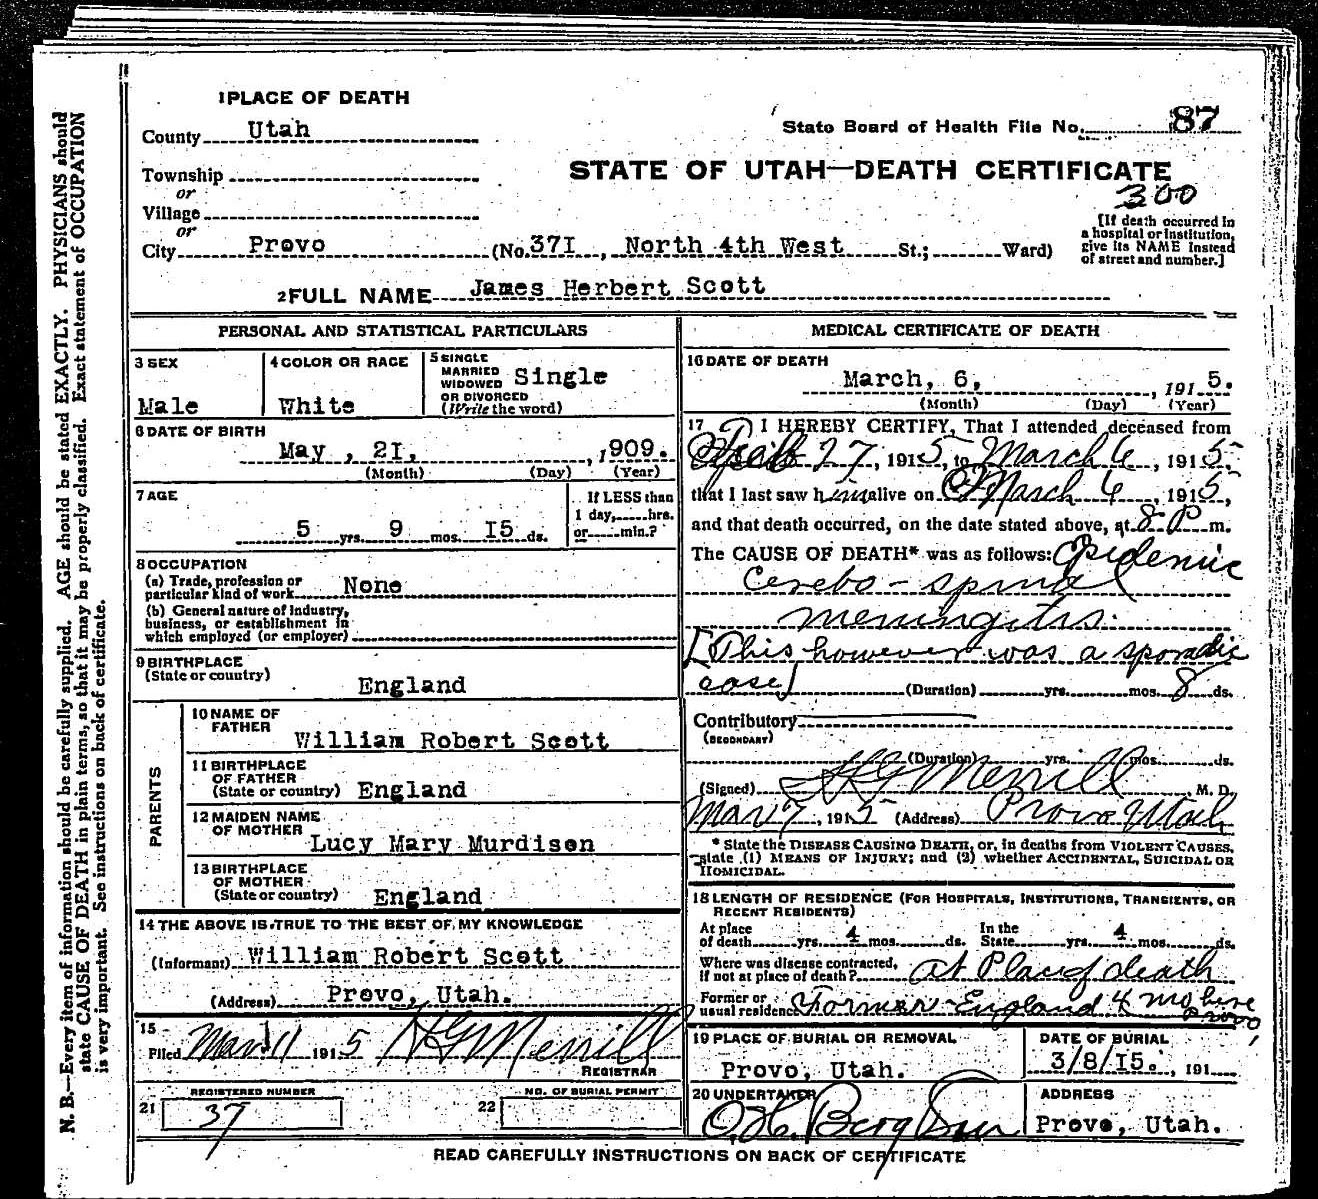 1 PLACE OF DEATH
County Utah
State Board of Health File No. 87
STATE OF UTAH—DEATH CERTIFICATE
Township
or
Village
or
300
[If death occurred in
a hospital or institution,
give its NAME instead
of street and number.]
City Provo (No. 37I, North 4th West St.; Ward)
2 FULL NAME James Herbert Scott
PERSONAL AND STATISTICAL PARTICULARS
3 SEX
Male
4 COLOR OR RACE
White
5 SINGLE
MARRIED
WIDOWED
OR DIVORCED
(Write the word)
Single
6 DATE OF BIRTH
May , 2I, , 1909.
(Month) (Day) (Year)
7 AGE
5 yrs. 9 mos. I5 ds.
If LESS than
1 day, hrs.
or min.?
8 OCCUPATION
(a) Trade, profession or
particular kind of work None
(b) General nature of industry,
business, or establishment in
which employed (or employer)
9 BIRTHPLACE
(State or country)
England
PARENTS
10 NAME OF
FATHER
William Robert Scott
11 BIRTHPLACE
OF FATHER
(State or country) England
12 MAIDEN NAME
OF MOTHER
Lucy Mary Murdison
13 BIRTHPLACE
OF MOTHER
(State or country) England
14 THE ABOVE IS TRUE TO THE BEST OF MY KNOWLEDGE
(Informant) William Robert Scott
(Address) Provo, Utah.
15
Filed Mar 11 1915 H G Merrill
REGISTRAR
REGISTERED NUMBER
21 37
NO. OF BURIAL PERMIT
22
MEDICAL CERTIFICATE OF DEATH
16 DATE OF DEATH
March, 6, , 1915.
(Month) (Day) (Year)
17 I HEREBY CERTIFY, That I attended deceased from
27, 1915, to March 6, 1915,
that I last saw him alive on March 6, 1915,
and that death occurred, on the date stated above, at 8 P m.
The CAUSE OF DEATH* was as follows: Epidemic
Cerebo-spinal
meningitis.
[This however was a sporadic
case] (Duration) yrs. mos. 8 ds.
Contributory
(SECONDARY)
(Duration) yrs. mos. ds.
(Signed) H G Merrill, M. D.
Mar 7, 1915 (Address) Provo Utah
* State the DISEASE CAUSING DEATH, or, in deaths from VIOLENT CAUSES,
state (1) MEANS OF INJURY; and (2) whether ACCIDENTAL, SUICIDAL OR
HOMICIDAL.
18 LENGTH OF RESIDENCE (FOR HOSPITALS, INSTITUTIONS, TRANSIENTS, OR
RECENT RESIDENTS)
At place
of death yrs. 4 mos. ds.
In the
State yrs. 4 mos. ds.
Where was disease contracted,
if not at place of death? at Place of death
Former or
usual residence Former England 4 mo here
Provo,
19 PLACE OF BURIAL OR REMOVAL
Provo, Utah.
DATE OF BURIAL
3/8/I5. , 191
20 UNDERTAKER
ADDRESS
Provo, Utah.
READ CAREFULLY INSTRUCTIONS ON BACK OF CERTIFICATE
N. B.—Every item of information should be carefully supplied. AGE should be stated EXACTLY. PHYSICIANS should
state CAUSE OF DEATH in plain terms, so that it may be properly classified. Exact statement of OCCUPATION
is very important. See instructions on back of certificate.